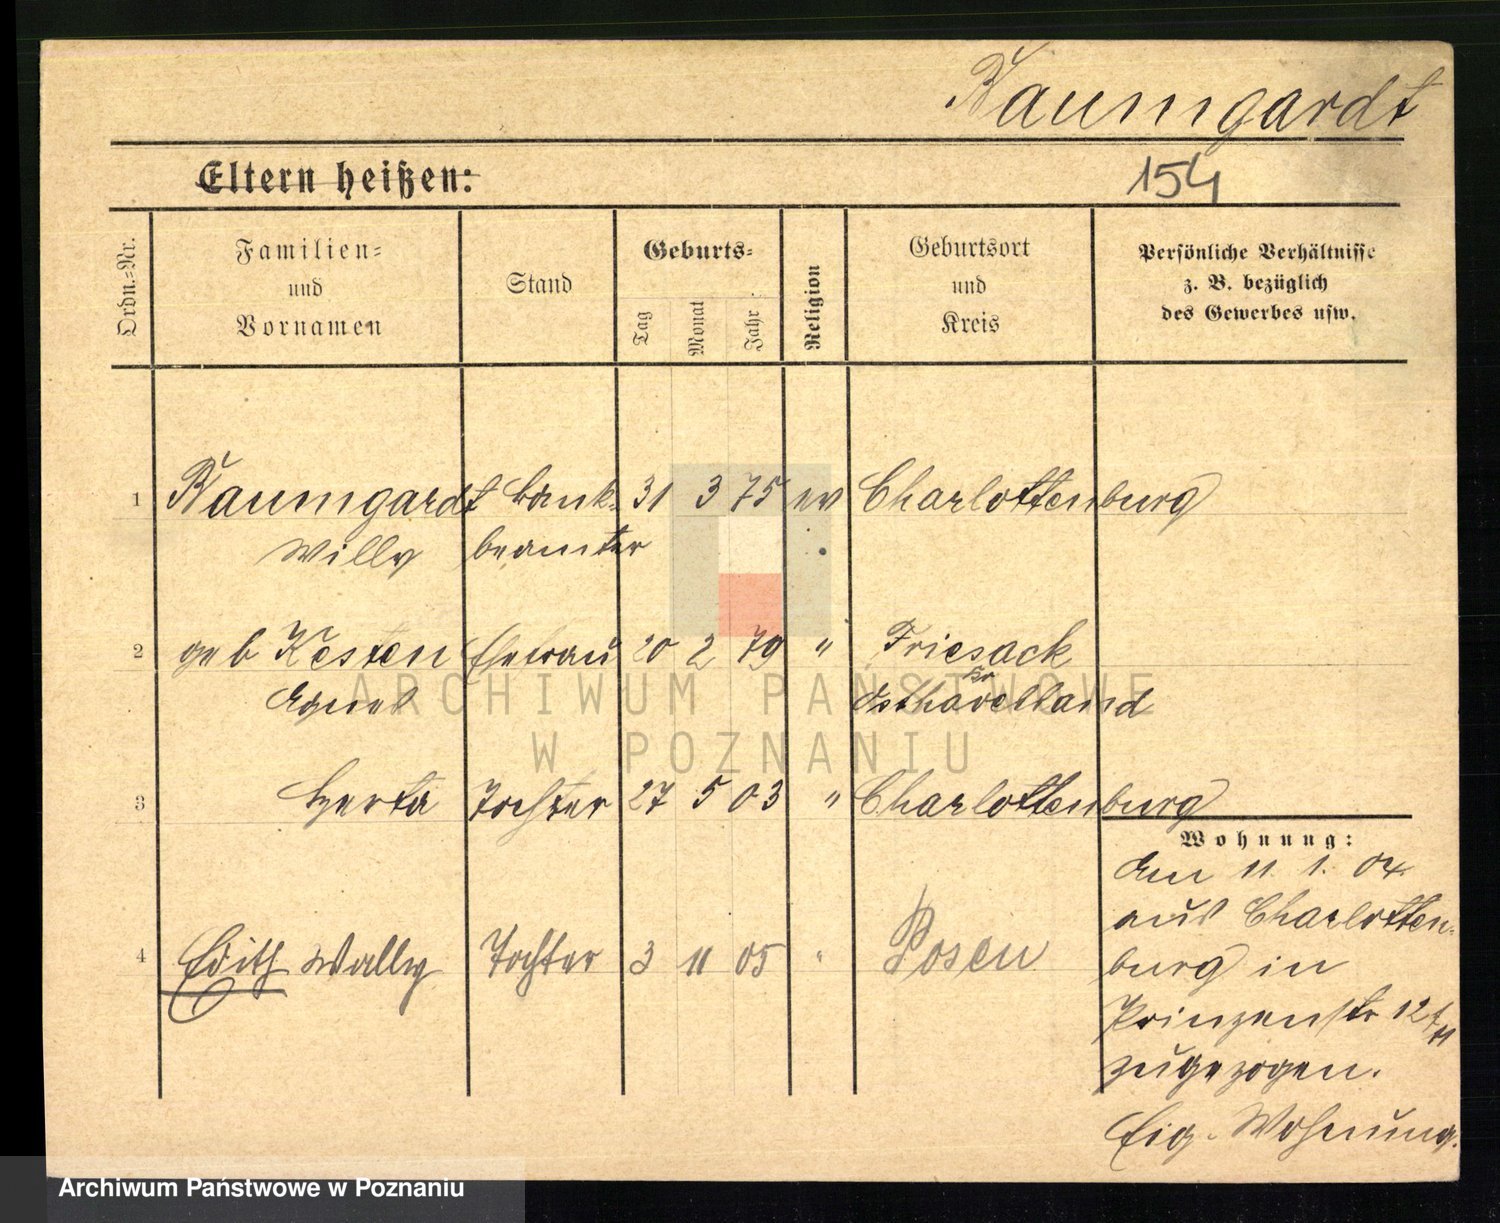 Baumgardt
Eltern heißen:
154
Ordn.=Nr.
Familien=
und
Vornamen
Stand
Geburts=
Tag
Monat
Jahr
Religion
Geburtsort
und
Kreis
Persönliche Verhältnisse
z. B. bezüglich
des Gewerbes usw.
1 Baumgardt Bank= 31 3 75 ev Charlottenburg
Willy beamter
2 geb Kesten Ehefrau 20 2 79 " Friesack
Agnes Kr Osthavelland
3 Herta Tochter 27 5 03 " Charlottenburg
4 Edith Wally Tochter 3 11 05 " Posen
Wohnung:
Am 11 1. 04
aus Charlotten=
burg in
Prinzenstr 12
zugezogen.
Eig. Wohnung.
ARCHIWUM PAŃSTWOWE
W POZNANIU
Archiwum Państwowe w Poznaniu